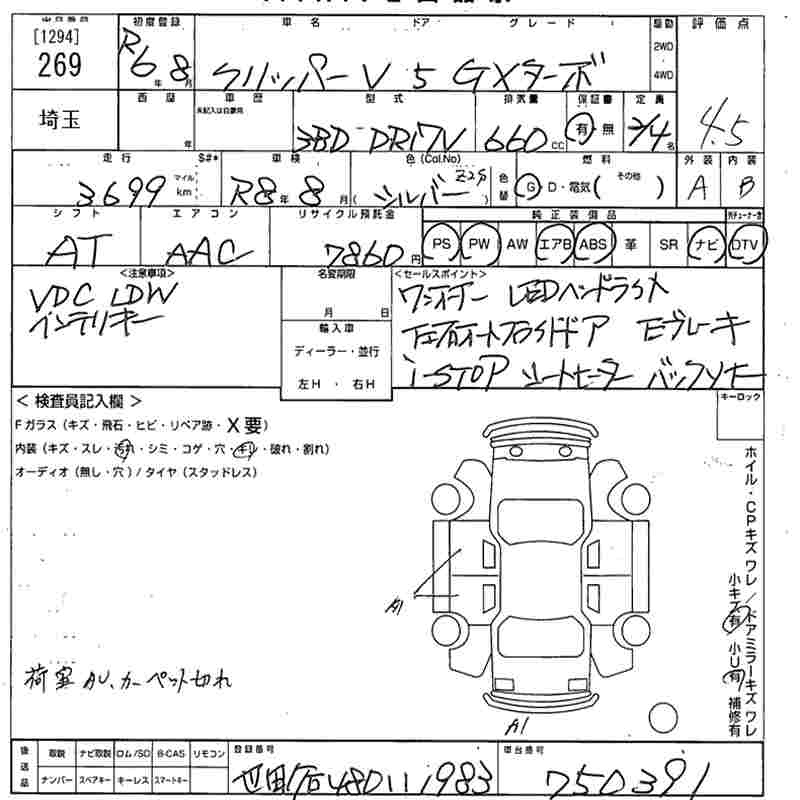 出品番号 初度登録 車名 ドア グレード 駆動 評価点
[1294] 269 R6年8月 クリッパーV 5 GXターボ 2WD 4WD 4.5
埼玉 西暦 年 車歴 未記入は自家用 型式 排気量 保証書 定員
3BD-DR17V 660cc 有・無 2/4名
走行 S#* 車検 色(Cal.No) 色替 燃料 外装 内装
3699 マイル km R8年8月 (シルバー Z2S) G・D・電気( その他 ) A B
シフト エアコン リサイクル預託金 純正装備品
AT AAC 7860円 PS PW AW エアB ABS 革 SR ナビ DTV
<注意事項> 名変期限 <セールスポイント>
VDC LDW 月 日 ワンオーナー LEDヘッドライト
インテリキー 輸入車 左右オートスライドドア Eブレーキ
ディーラー・並行 i-STOP シートヒーター バックソナー
左H・右H
<検査員記入欄> キーロック
Fガラス(キズ・飛石・ヒビ・リペア跡・X要)
内装(キズ・スレ・汚れ・シミ・コゲ・穴・キレ・破れ・割れ)
オーディオ(無し・穴)/タイヤ(スタッドレス)
ホイル・CPキズ ワレ/ドアミラーキズ ワレ
小キズ有 小U有 補修有
A1
荷室 AU、カーペット切れ
A1
後送品 取説 ナビ取説 ロム/SD B-CAS リモコン 登録番号 車台番号
ナンバー スペアキー キーレス スマートキー 480 11983 750391